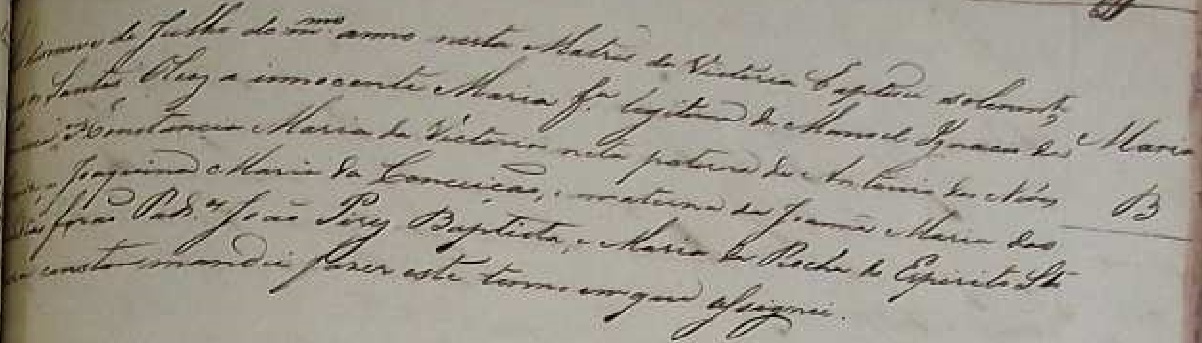 de Julho do mmo anno nesta Matris da Victoria Baptisei solemnte
Santos Oleos a innocente Maria fa legitima de Manoel Ignacio da Maria
Constancia Maria da Victoria neta paterna de Antonio das Neves
Joaquina Maria da Conceição, e materna de Joanna Maria das B
forão Padros João Pirz Baptista, e Maria da Rocha do Espirito Sto
consta mandei fazer este termo em que assignei.